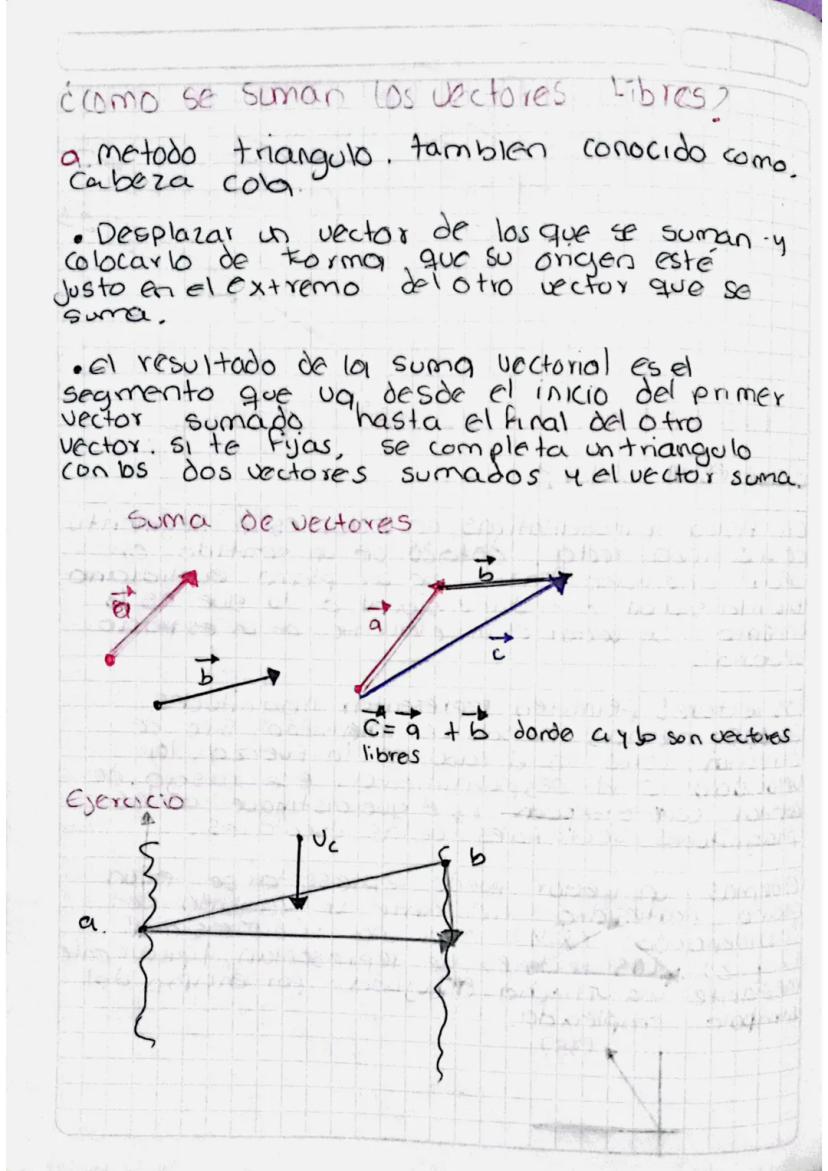 ¿Como se suman los vectores libres?
a. metodo triangulo. tambien conocido como.
cabeza cola.
• Desplazar un vector de los que se suman y
colocarlo de forma que su origen esté
justo en el extremo del otro vector que se
suma.
• el resultado de la suma vectorial es el
segmento que va desde el inicio del primer
vector sumado hasta el final del otro
vector. si te fijas, se completa un triangulo
con los dos vectores sumados y el vector suma.
Suma de vectores
a
b
a
b
c
C = a + b donde a y b son vectores
libres
Ejercicio
Vc
b
a.